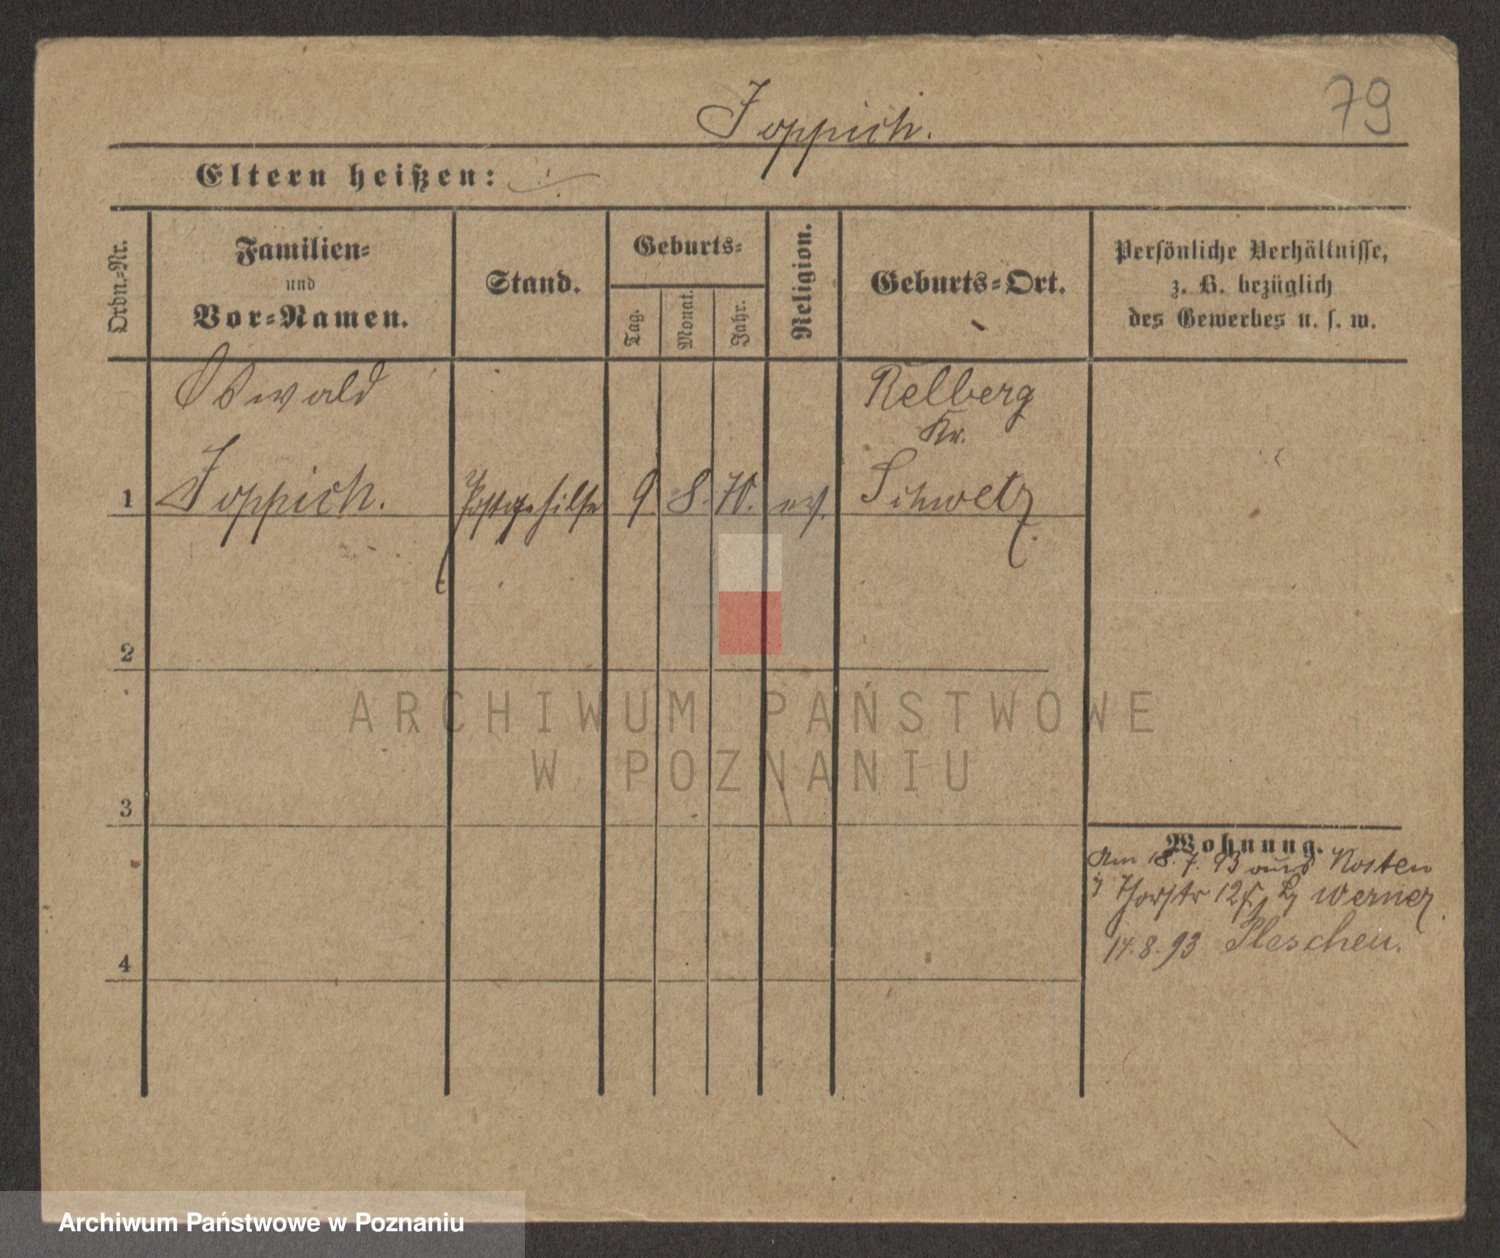 79
Joppich.
Eltern heißen:
Ordn.-Nr.
Familien-
und
Vor-Namen.
Stand.
Geburts-
Tag.
Monat.
Jahr.
Religion.
Geburts-Ort.
Persönliche Verhältnisse,
z. B. bezüglich
des Gewerbes u. s. w.
Oswald
Joppich.
1
Postgehilfe
9. 8. 70. ev.
Relberg
Kr.
Schwetz.
2
3
4
Wohnung.
Am 18.7.93 aus Kosten
Werner
14.8.93 Pleschen.
ARCHIWUM PAŃSTWOWE
W POZNANIU
Archiwum Państwowe w Poznaniu